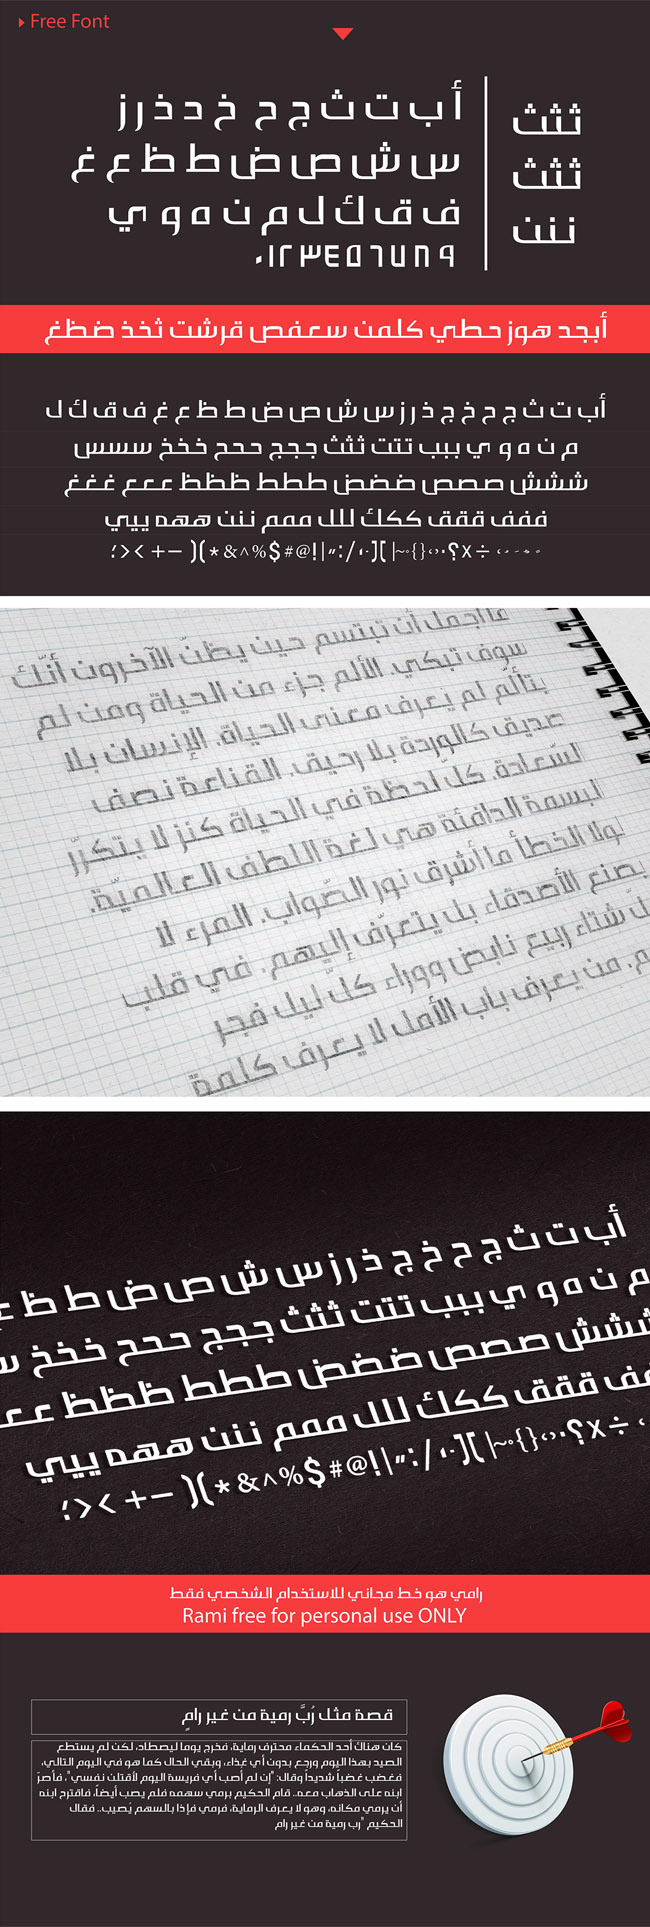 Free Font
أ ب ت ث ج ح خ د ذ ر ز
س ش ص ض ط ظ ع غ
ف ق ك ل م ن ه و ي
٠١٢٣٤٥٦٧٨٩
ثثث
ثثث
ننن
أبجد هوز حطي كلمن سعفص قرشت ثخذ ضظغ
أب ت ث ج ح خ ج ذ ر ز س ش ص ض ط ظ ع غ ف ق ك ل
م ن ه و ي ببب تتت ثثث ججج ححح خخخ سسس
ششش صصص ضضض ططط ظظظ ععع غغغ
ففف ققق ككك للل ممم ننن ههه ييي
ما أجمل أن تبتسم حين يظنّ الآخرون أنّك
سوف تبكي. الألم جزء من الحياة ومن لم
يتألّم لم يعرف معنى الحياة. الإنسان بلا
صديق كالوردة بلا رحيق. القناعة نصف
السّعادة. كلّ لحظة في الحياة كنز لا يتكرّر
البسمة الدافئة هي لغة اللطف العالميّة.
لولا الخطأ ما أشرق نور الصّواب. المرء لا
يصنع الأصدقاء بل يتعرّف إليهم. في قلب
كلّ شتاء ربيع نابض ووراء كلّ ليل فجر
من يعرف باب الأمل لا يعرف كلمة
أب ت ث ج ح خ ج ذ ر ز س ش ص ض ط ظ ع
م ن ه و ي ببب تتت ثثث ججج ححح خخخ س
ششش صصص ضضض ططط ظظظ ععع
فف ققق ككك للل ممم ننن ههه ييي
رامي هو خط مجاني للاستخدام الشخصي فقط
Rami free for personal use ONLY
قصة مثل رُبَّ رمية من غير رامٍ
كان هناك أحد الحكماء محترف رماية، فخرج يوما ليصطاد، لكن لم يستطع
الصيد بهذا اليوم ورجع بدون أي غذاء، وبقي الحال كما هو في اليوم التالي،
فغضب غضباً شديداً وقال: "إن لم أصب أي فريسة اليوم لأقتلن نفسي"، فأصرّ
ابنه على الذهاب معه.. قام الحكيم برمي سهمه فلم يصب أيضاً، فاقترح ابنه
أن يرمي مكانه، وهو لا يعرف الرماية، فرمي فإذا بالسهم يُصيب.. فقال
الحكيم "رب رمية من غير رام